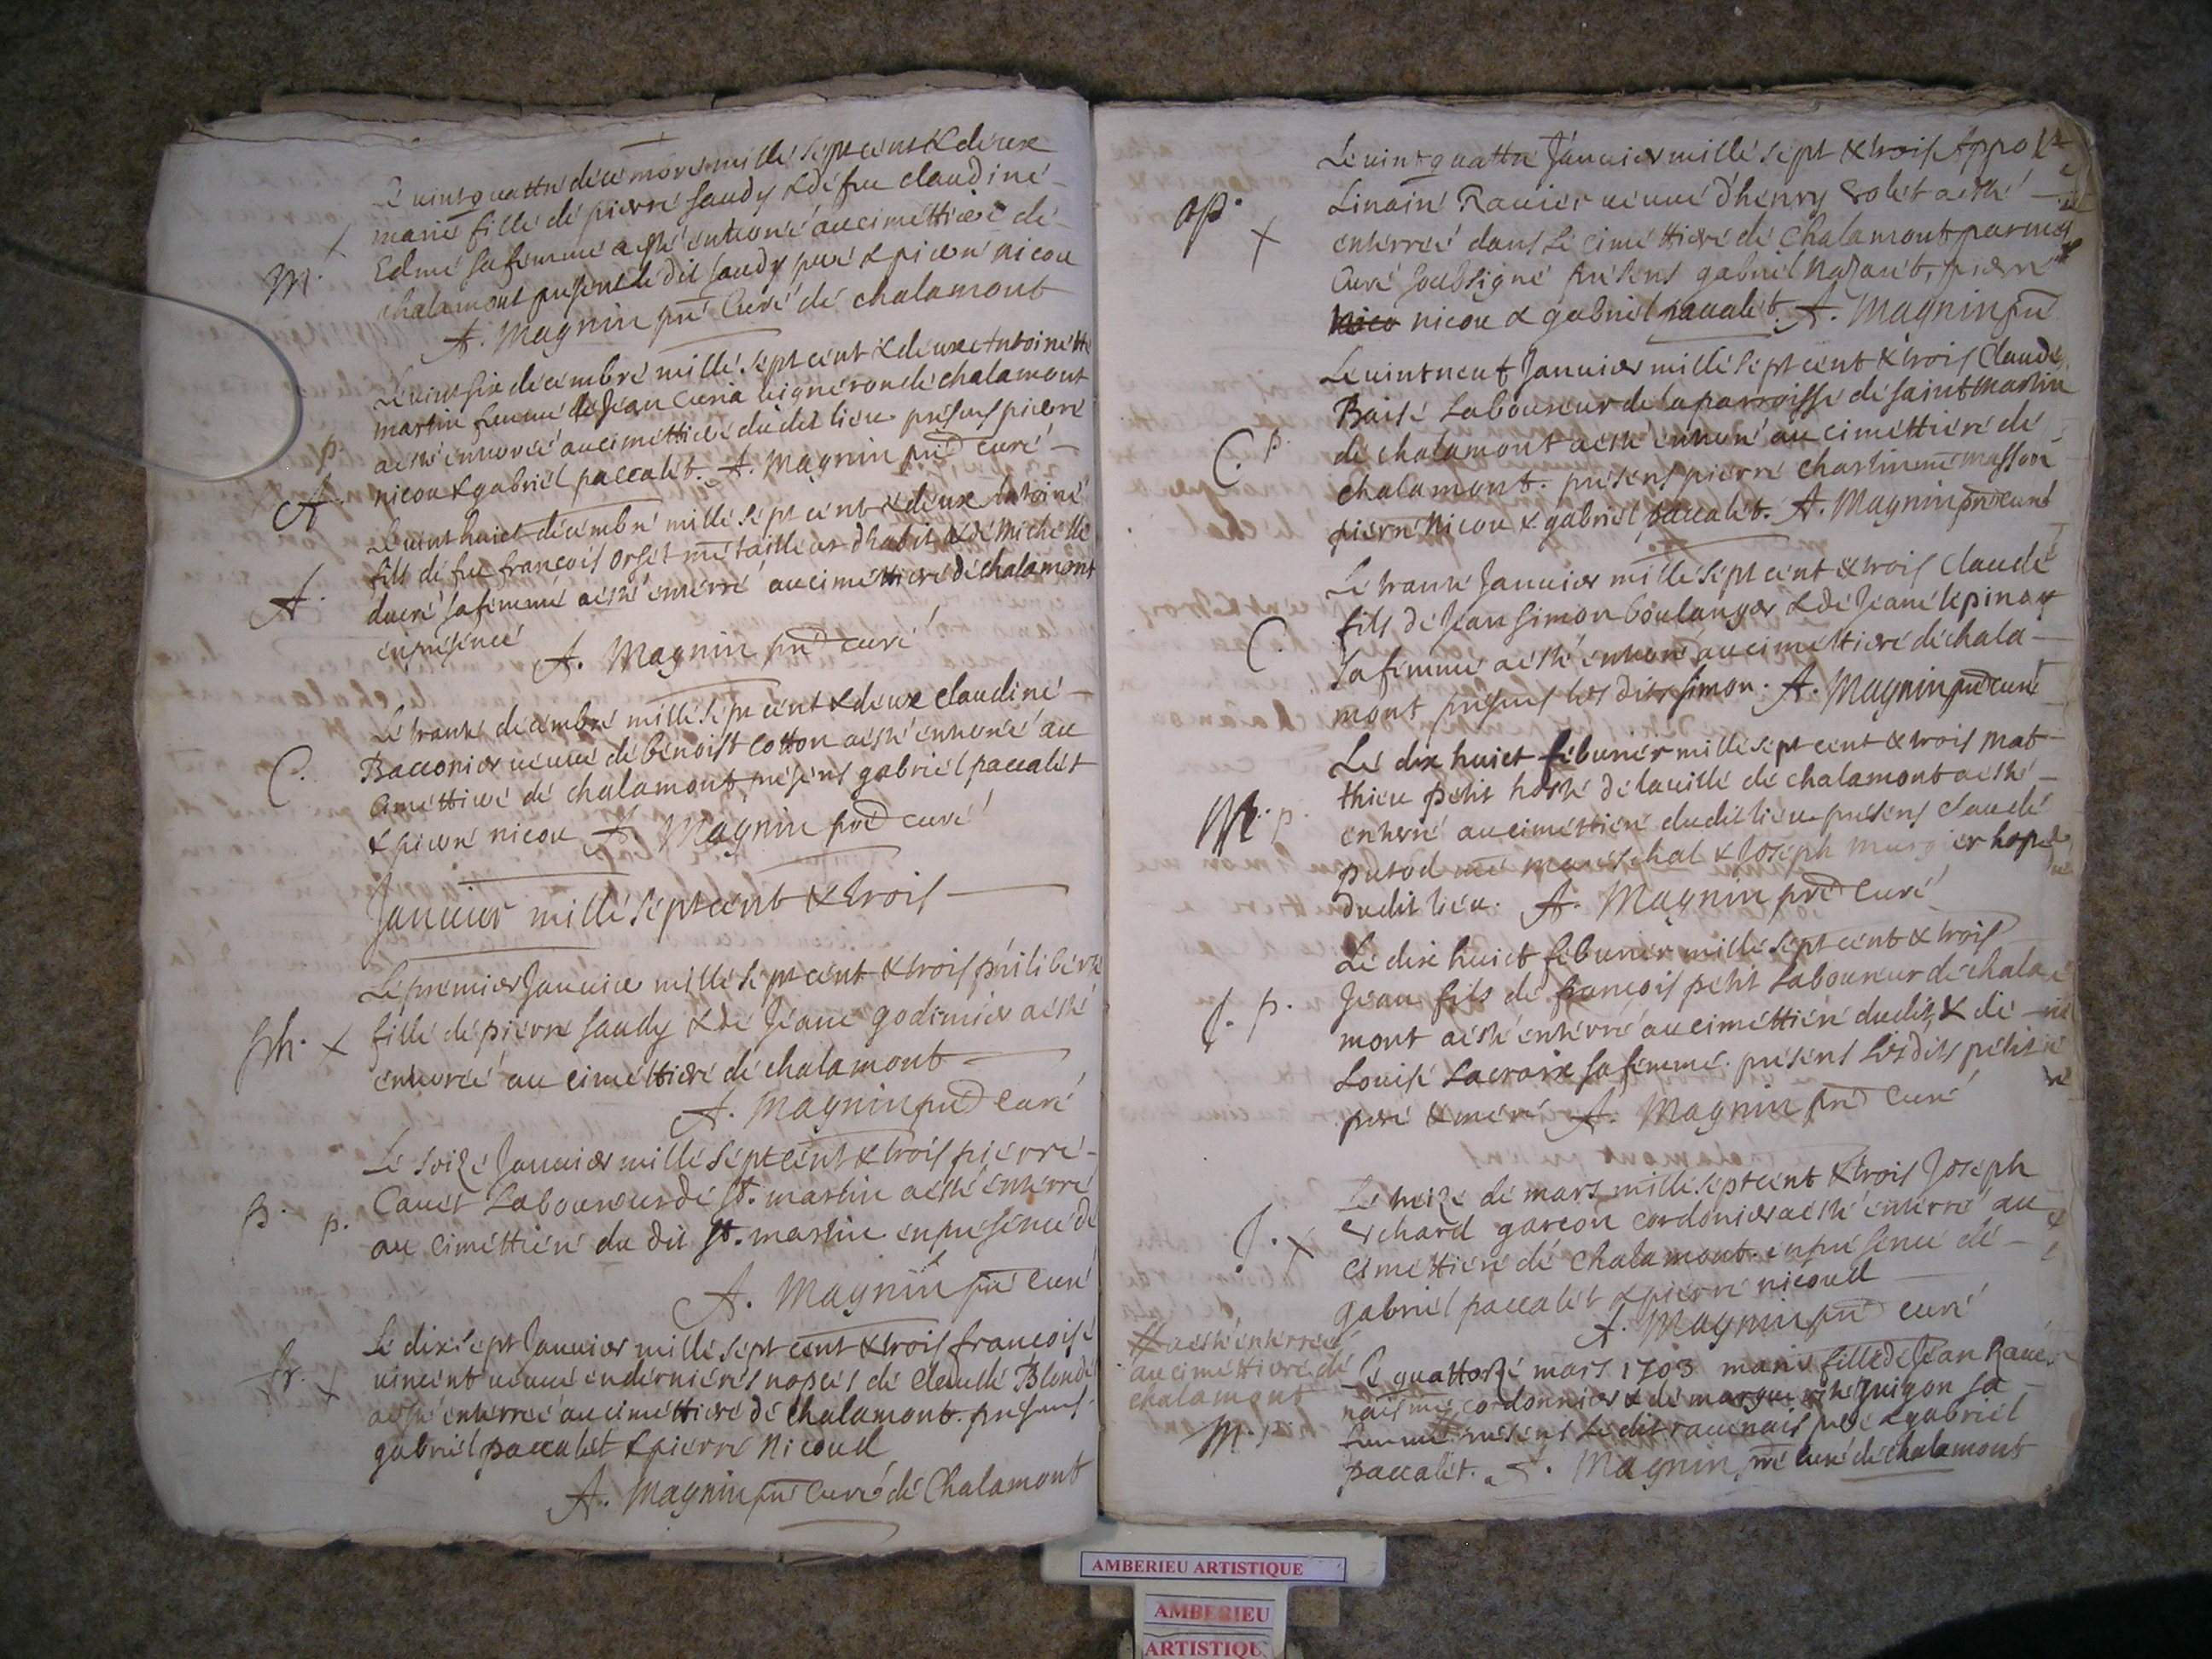 Le vint quattre decembre mille sept cent & deux
marie fille de pierre saudy & de feu claudine
Edme sa femme a esté enterré au cimettiere de
chalamont present le dit saudy pere & pierre nicou
M. X
A. Magnin pre Curé de chalamont
Le vint six decembre mille sept cent & deux Antoinette
martin femme de Jean vigneron de chalamont
a esté enterreé au cimettiere du dit lieu presens pierre
nicou & gabriel paccalet. A. Magnin pre curé
p.
A.
Le vint huict decembre mille sept cent & deux Antoine
fils de feu françois orset me tailleur d'habit & de Michelle
ducré sa femme a esté enterré au cimettiere de chalamont
en presence
A.
A. Magnin pre curé
Le trante decembre mille sept cent & deux claudine
Bacconier veuve de benoist Cotton a esté enterré au
Cimettiere de chalamont presens gabriel paccalet
& pierre nicou A. Magnin pre curé
C.
Januier mille sept cent & trois
Le premier Januier mille sept cent & trois philiberte
fille de pierre saudy & de Jeane godimier a esté
enterreé au cimettiere de chalamont
ph. X
A. Magnin pre Curé
Le seize Januier mille sept cent & trois pierre
Cauet Laboureur de st. martin a esté enterré
au cimettiere du dit st. martin en presence de
p. p.
A. Magnin pre Curé
Le dix sept Januier mille sept cent & trois françoise
vincent veuve en dernieres nopces de Claude Blondel
a esté enterreé au cimettiere de chalamont. presens
gabriel paccalet & pierre Nicoud
fr. X
A. Magnin pre Curé de Chalamont
Le vint quattre Januier mille sept & trois Appo
Linaire Rauier veuve d'henry Rolet a esté
enterreé dans le cimettiere de Chalamont par moy
Curé soubsigné presens gabriel Nazaret, pierre
nico nicou & gabriel paccalet. A. Magnin pre
ap. X
Le vint neuf Januier mille sept cent & trois Claude
Baise Laboureur de la parroisse de saint martin
de chalamont a esté enterré au cimettiere de
chalamont. presens pierre Chastin me masson
pierre Nicou & gabriel paccalet. A. Magnin pre curé
C. p.
Le trante Januier mille sept cent & trois Claude
fils de Jean simon boulanger & de Jeane lepinay
sa femme a esté enterré au cimettiere de chala-
mont presens les dits simon. A. Magnin pre curé
C.
Le dix huict feburier mille sept cent & trois Mat-
thieu petit hoste de la ville de chalamont a esté
enterré au cimettiere du dit lieu presens Claude
putod me mareschal & Joseph hoste
du dit lieu. A. Magnin pre Curé
M. p.
Le dix huict feburier mille sept cent & trois
Jean fils de françois petit Laboureur de chala-
mont a esté enterré au cimettiere du dit, & de
Louise Lacroix sa femme. presens Les dits petit
pere & mere A. Magnin pre Curé
J. p.
Le treize de mars mille sept cent & trois Joseph
Erchard garcon cordonier a esté enterré au
cimettiere de Chalamont. en presence de
gabriel paccalet & pierre nicoud
J. X
A. Magnin pre curé
# a esté enterreé
au cimettiere de
chalamont
Le quattorze mars 1703 marie fille de Jean Raue-
nais me cordonnier & de marguerite guigon sa
femme # presens Ledit rauenais pere & gabriel
paccalet. A. Magnin, pre Curé de chalamont
M.
AMBERIEU ARTISTIQUE
AMBERIEU
ARTISTIQU